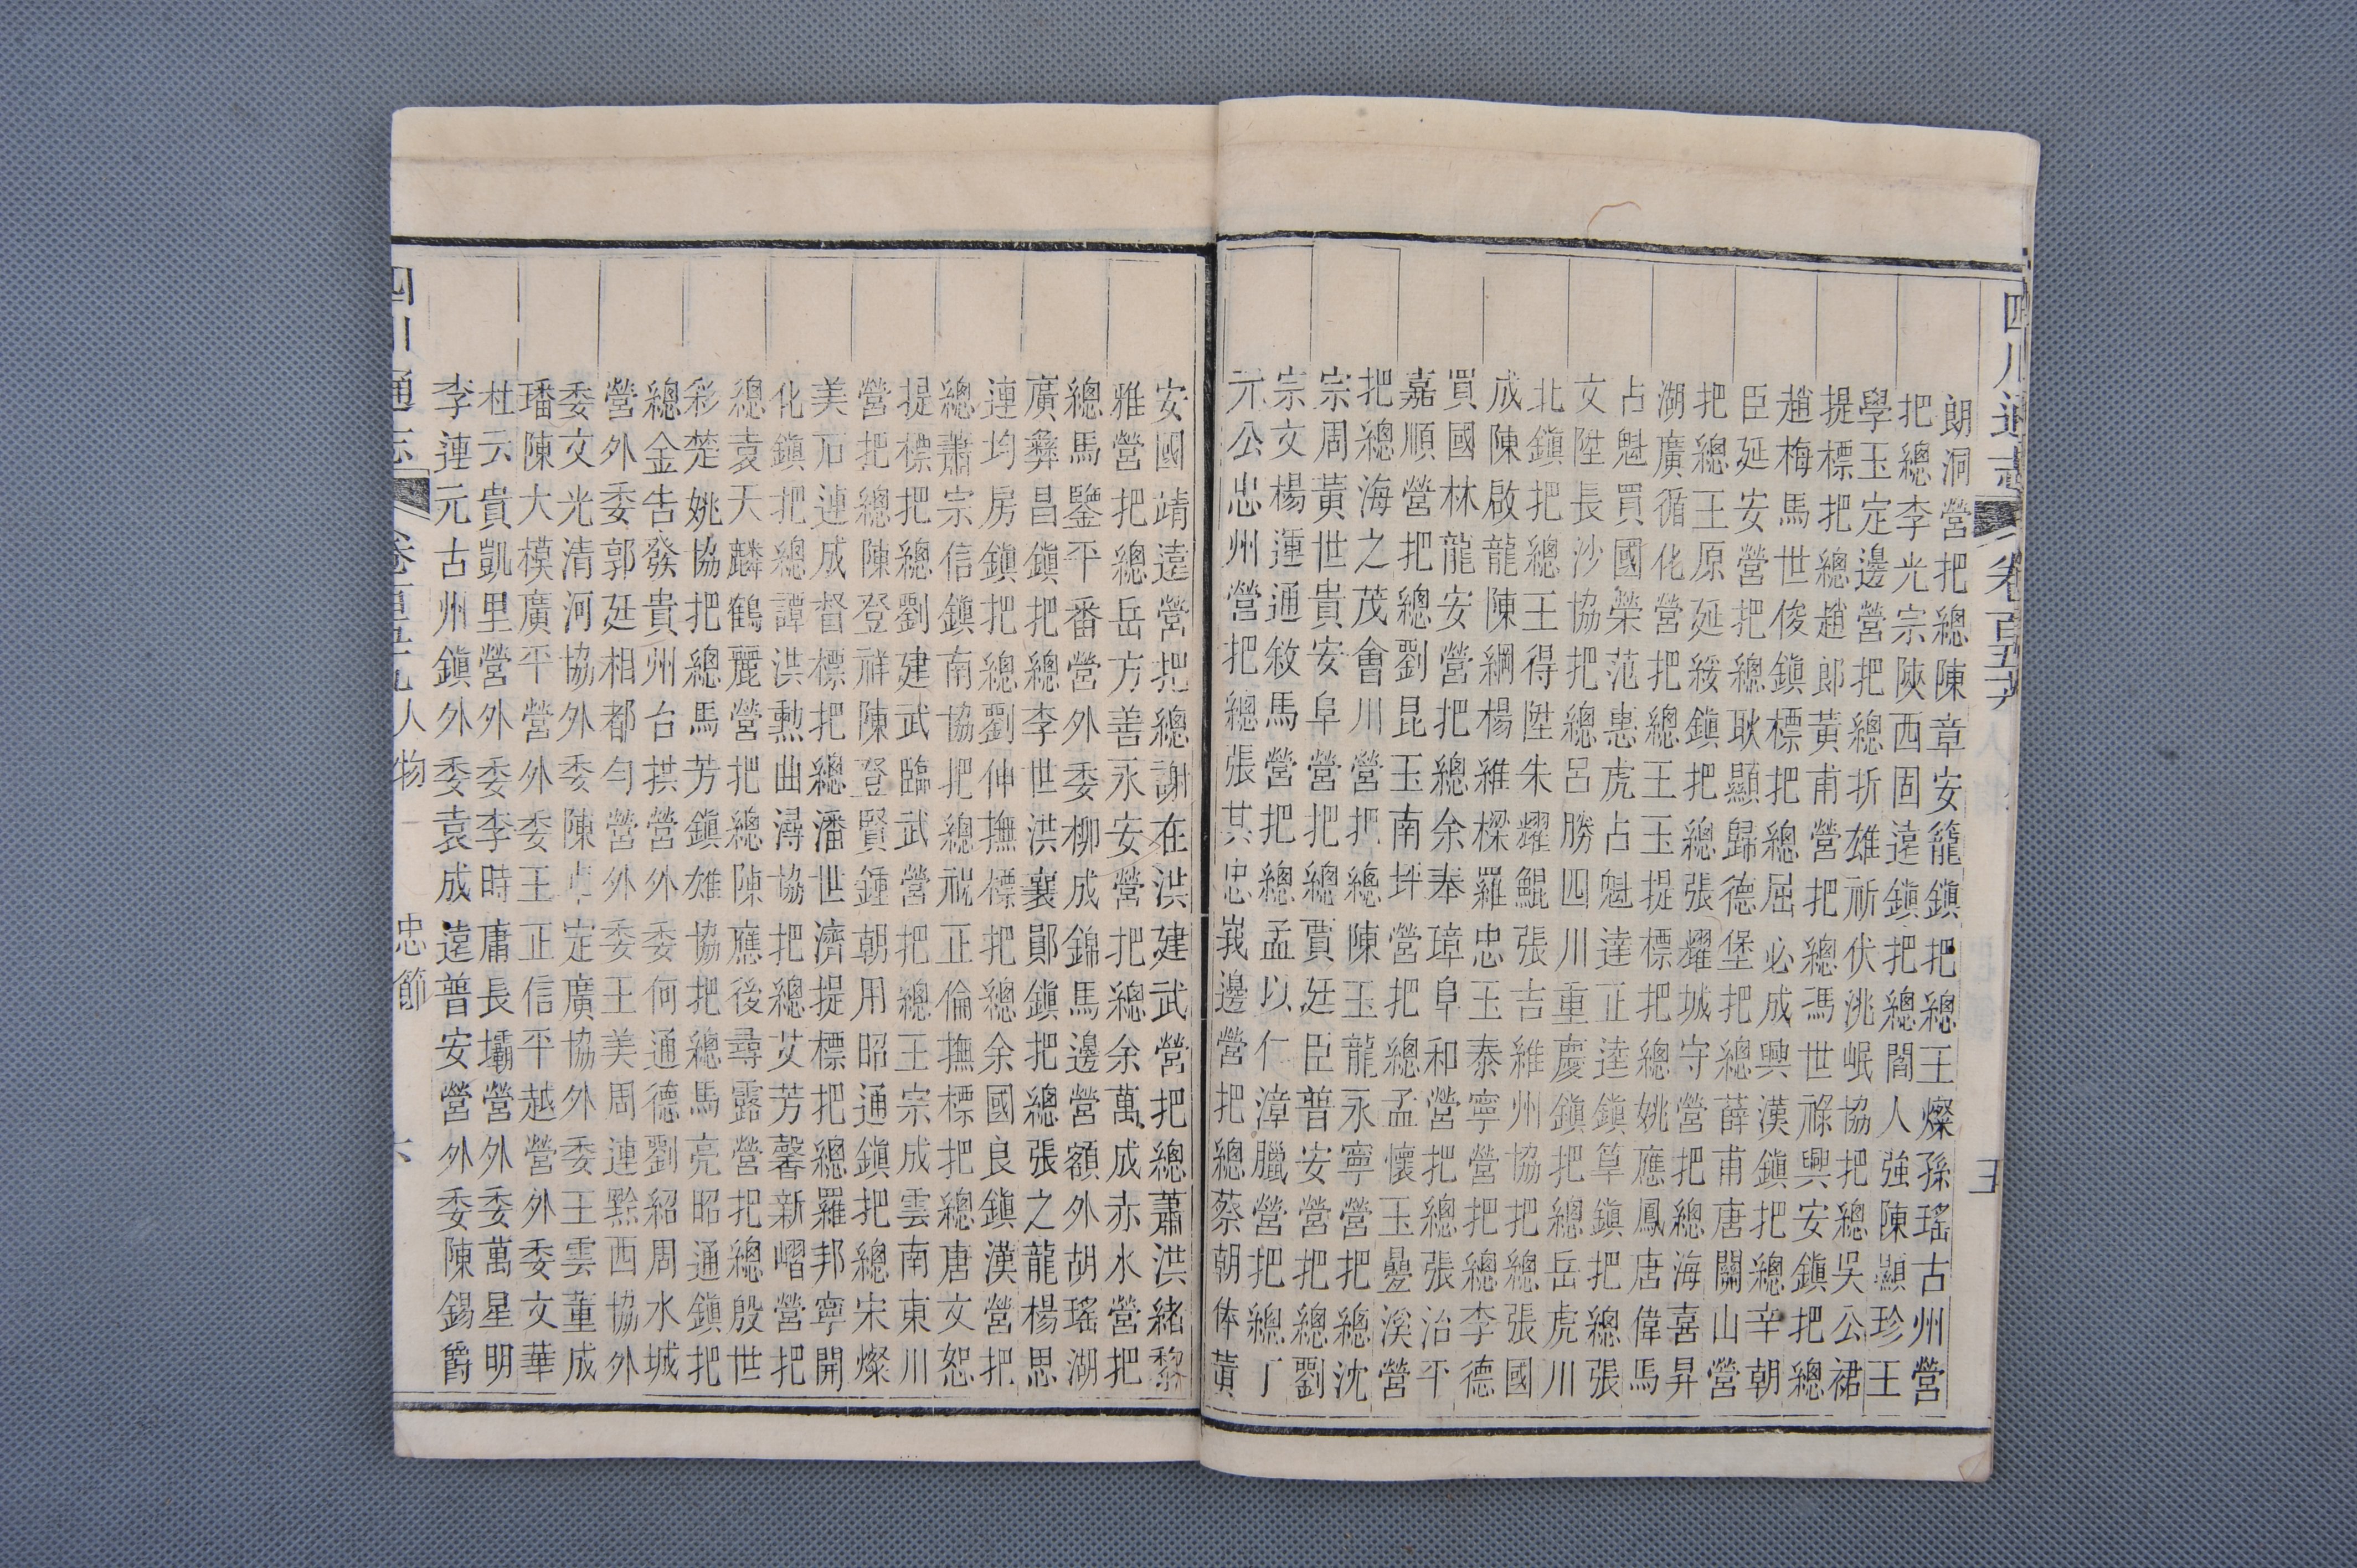 四川通志 卷百五十 人物
朗洞營把總陳章安籠鎮把總王燦孫瑤古州營
把總李光宗陝西固遠鎮把總閻人強陳顯珍王
學玉定邊營把總折雄祈伏洮岷協把總吳公裙
提標把總趙郎黃甫營把總馮世祿興安鎮把總
趙梅馬世俊鎮標把總屈必成興漢鎮把總辛朝
臣延安營把總耿顯歸德堡把總薛甫唐關山營
把總王原延綏鎮把總張耀城守營把總海喜昇
湖廣循化營把總王玉提標把總姚應鳳唐偉馬
占魁買國榮范惠虎占魁達正逵鎮筸鎮把總張
文陞長沙協把總呂勝四川重慶鎮把總岳虎川
北鎮把總王得陞朱耀鯤張吉維州協把總張國
成陳啟龍陳綱楊維樑羅忠玉泰寧營把總李德
買國林龍安營把總余奉璋阜和營把總張治平
嘉順營把總劉昆玉南坪營把總孟懷玉疊溪營
把總海之茂會川營把總陳玉龍永寧營把總沈
宗周黃世貴安阜營把總賈廷臣普安營把總劉
宗文楊運通敘馬營把總孟以仁漳臘營把總丁
元公忠州營把總張其忠峩邊營把總蔡朝体黃
安國靖遠營把總謝在洪建武營把總蕭洪緒黎
雅營把總岳方善永安營把總余萬成赤水營把
總馬鑒平番營外委柳成錦馬邊營額外胡瑤湖
廣彝昌鎮把總李世洪襄鄖鎮把總張之龍楊思
連均房鎮把總劉伸撫標把總余國良鎮漢營把
總蕭宗信鎮南協把總祝正倫撫標把總唐文恕
提標把總劉建武臨武營把總王宗成雲南東川
營把總陳登祥陳登賢鍾朝用昭通鎮把總宋燦
美石連成督標把總潘世濟提標把總羅邦寧開
化鎮把總譚洪勳曲潯協把總艾芳馨新嶍營把
總袁天麟鶴麗營把總陳應後尋霑營把總殷世
彩楚姚協把總馬芳鎮雄協把總馬亮昭通鎮把
總金告發貴州台拱營外委何通德劉紹周水城
營外委郭廷相都勻營外委王美周連黔西協外
委文光清河協外委陳 定廣協外委王雲董成
璠陳大模廣平營外委王正信平越營外委文華
杜云貴凱里營外委李時庸長壩營外委萬星明
李連元古州鎮外委袁成遠普安營外委陳錫爵
四川通志 卷百五十 人物 忠節 六